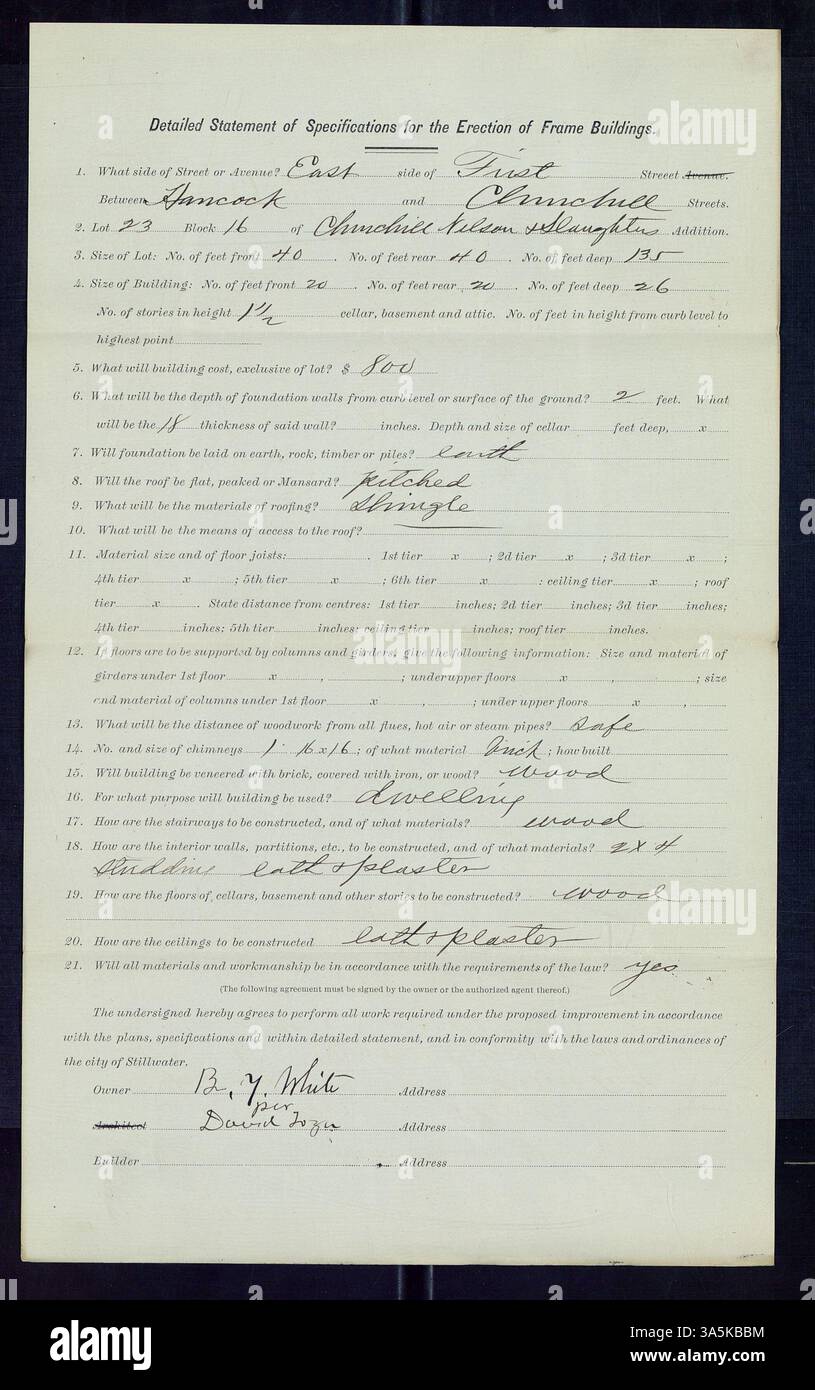 Detailed Statement of Specifications for the Erection of Frame Buildings.
1. What side of Street or Avenue? East side of First Streeet Avenue.
Between Hancock and Churchill Streets.
2. Lot 23 Block 16 of Churchill Nelson & Slaughters Addition.
3. Size of Lot: No. of feet front 40. No. of feet rear 40. No. of feet deep 135
4. Size of Building: No. of feet front 20. No. of feet rear 20. No. of feet deep 26
No. of stories in height 1 1/2 cellar, basement and attic. No. of feet in height from curb level to
highest point
5. What will building cost, exclusive of lot? $ 800
6. What will be the depth of foundation walls from curb level or surface of the ground? 2 feet. What
will be the 18 thickness of said wall? inches. Depth and size of cellar feet deep, x
7. Will foundation be laid on earth, rock, timber or piles? earth
8. Will the roof be flat, peaked or Mansard? pitched
9. What will be the materials of roofing? Shingle
10. What will be the means of access to the roof?
11. Material size and of floor joists: . 1st tier x ; 2d tier x ; 3d tier x ;
4th tier x ; 5th tier x ; 6th tier x : ceiling tier x ; roof
tier x . State distance from centres: 1st tier inches; 2d tier inches; 3d tier inches;
4th tier inches; 5th tier inches; ceiling tier inches; roof tier inches.
12. If floors are to be supported by columns and girders, give the following information: Size and material of
girders under 1st floor x , ; under upper floors x , ; size
and material of columns under 1st floor x , ; under upper floors x ,
13. What will be the distance of woodwork from all flues, hot air or steam pipes? Safe
14. No. and size of chimneys 1 16 x 16 ; of what material brick ; how built
15. Will building be veneered with brick, covered with iron, or wood? wood
16. For what purpose will building be used? dwelling
17. How are the stairways to be constructed, and of what materials? wood
18. How are the interior walls, partitions, etc., to be constructed, and of what materials? 2 x 4
Studding lath & plaster
19. How are the floors of, cellars, basement and other stories to be constructed? wood
20. How are the ceilings to be constructed lath & plaster
21. Will all materials and workmanship be in accordance with the requirements of the law? yes
(The following agreement must be signed by the owner or the authorized agent thereof.)
The undersigned hereby agrees to perform all work required under the proposed improvement in accordance
with the plans, specifications and within detailed statement, and in conformity with the laws and ordinances of
the city of Stillwater.
Owner B. Y. White Address
per
Architect David Tozer Address
Builder Address
alamy
Image ID: A5KBBM
www.alamy.com